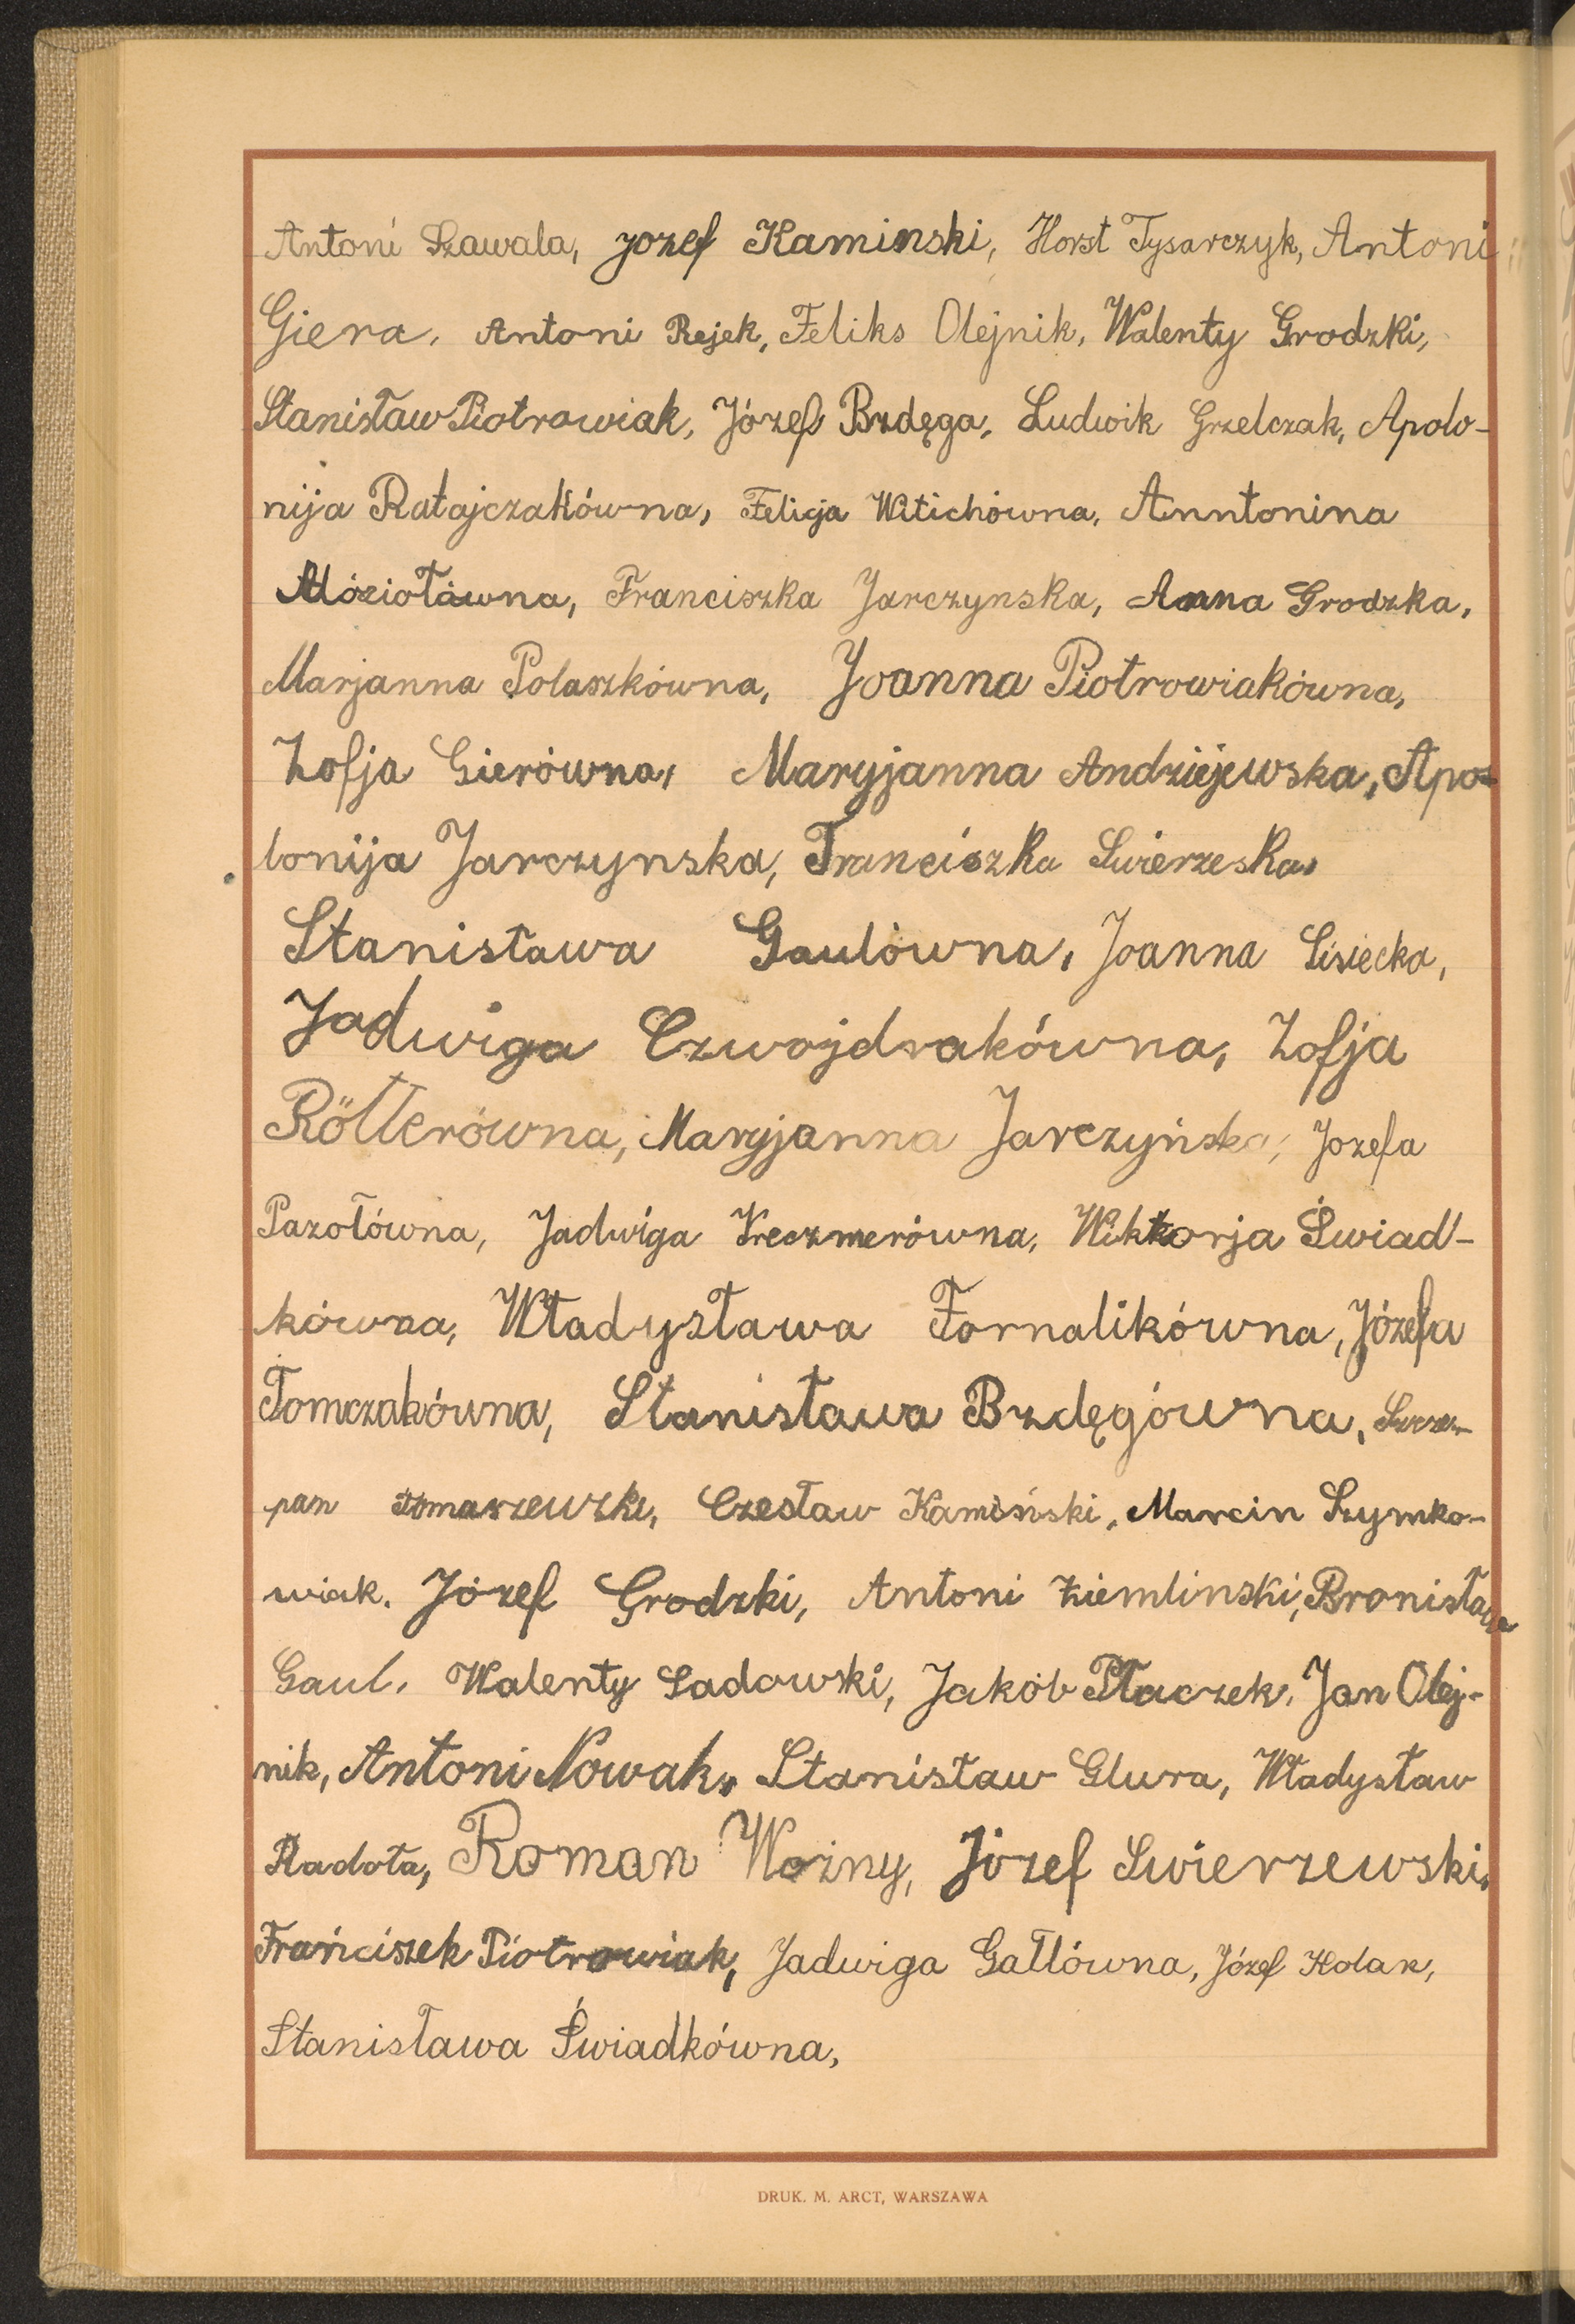 Antoni Szawala, Jozef Kaminski, Horst Tysarczyk, Antoni
Giera, Antoni Rejek, Feliks Olejnik, Walenty Grodzki,
Stanisław Piotrowiak, Józef Brzdęga, Ludwik Grzelczak, Apolo-
nija Ratajczakówna, Felicja Witichówna, Anntonina
Móziołówna, Franciszka Jarczynska, Anna Grodzka,
Marjanna Polaszkówna, Joanna Piotrowiakówna,
Zofja Gierówna, Maryjanna Andziejewska, Apo-
lonija Jarczynska, Franciszka Swierzeska,
Stanisława Gaulówna, Joanna Lisiecka,
Jadwiga Czwojdrakówna, Zofja
Röttlerówna, Maryjanna Jarczyńska, Jozefa
Pazołówna, Jadwiga Kreczmerówna, Wiktorja Świad-
kówna, Władysława Fornalikówna, Józefa
Tomczakówna, Stanisława Brzdęgówna, Szcze-
pan Tomaszewski, Czesław Kamiński, Marcin Szymko-
wiak, Józef Grodzki, Antoni Ziemlinski, Bronisław
Gaul, Walenty Sadowski, Jakób Płaczek, Jan Olej-
nik, Antoni Nowak, Stanisław Glura, Władysław
Radoła, Roman Wożny, Józef Swierzewski,
Frańciszek Piotrowiak, Jadwiga Gałłówna, Józef Kolan,
Stanisława Świadkówna,
DRUK. M. ARCT, WARSZAWA